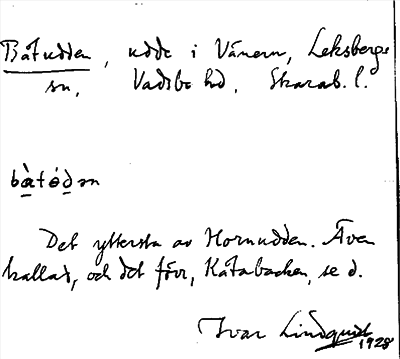 Båtudden, udde i Vänern, Leksbergs
sn, Vadsbo hd, Skarab. l.
bàtódən
Det yttersta av Hornudden. Även
kallad, och det förr, Kåtabacken, se d.
Ivar Lindquist
1928